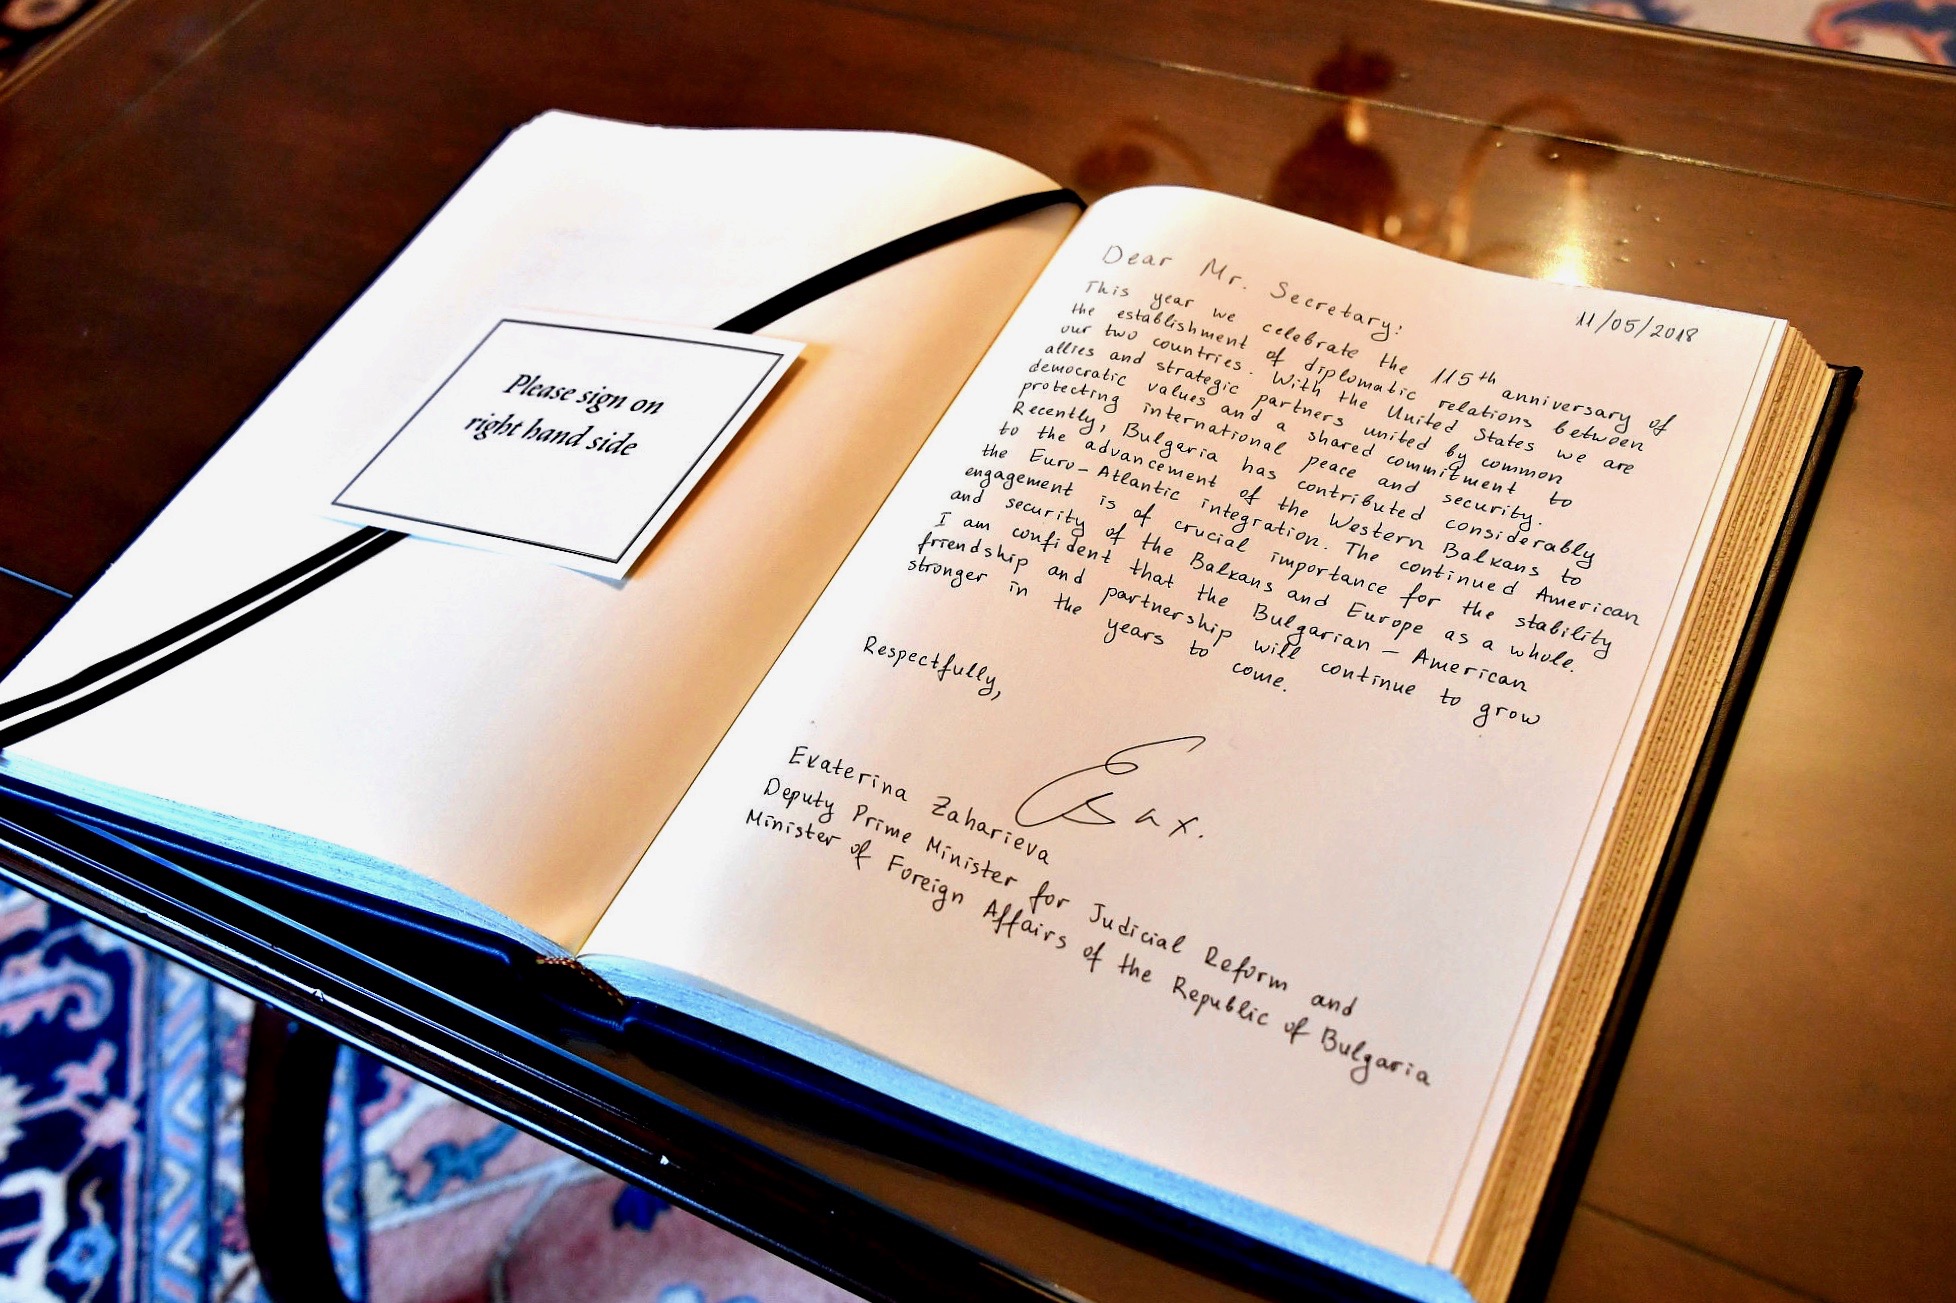 Please sign on
right hand side
Dear Mr. Secretary:
11/05/2018
This year we celebrate the 115th anniversary of
the establishment of diplomatic relations between
our two countries. With the United States we are
allies and strategic partners united by common
democratic values and a shared commitment to
protecting international peace and security.
Recently, Bulgaria has contributed considerably
to the advancement of the Western Balkans to
the Euro-Atlantic integration. The continued American
engagement is of crucial importance for the stability
and security of the Balkans and Europe as a whole.
I am confident that the Bulgarian - American
friendship and partnership will continue to grow
stronger in the years to come.
Respectfully,
Ekaterina Zaharieva
Deputy Prime Minister for Judicial Reform and
Minister of Foreign Affairs of the Republic of Bulgaria